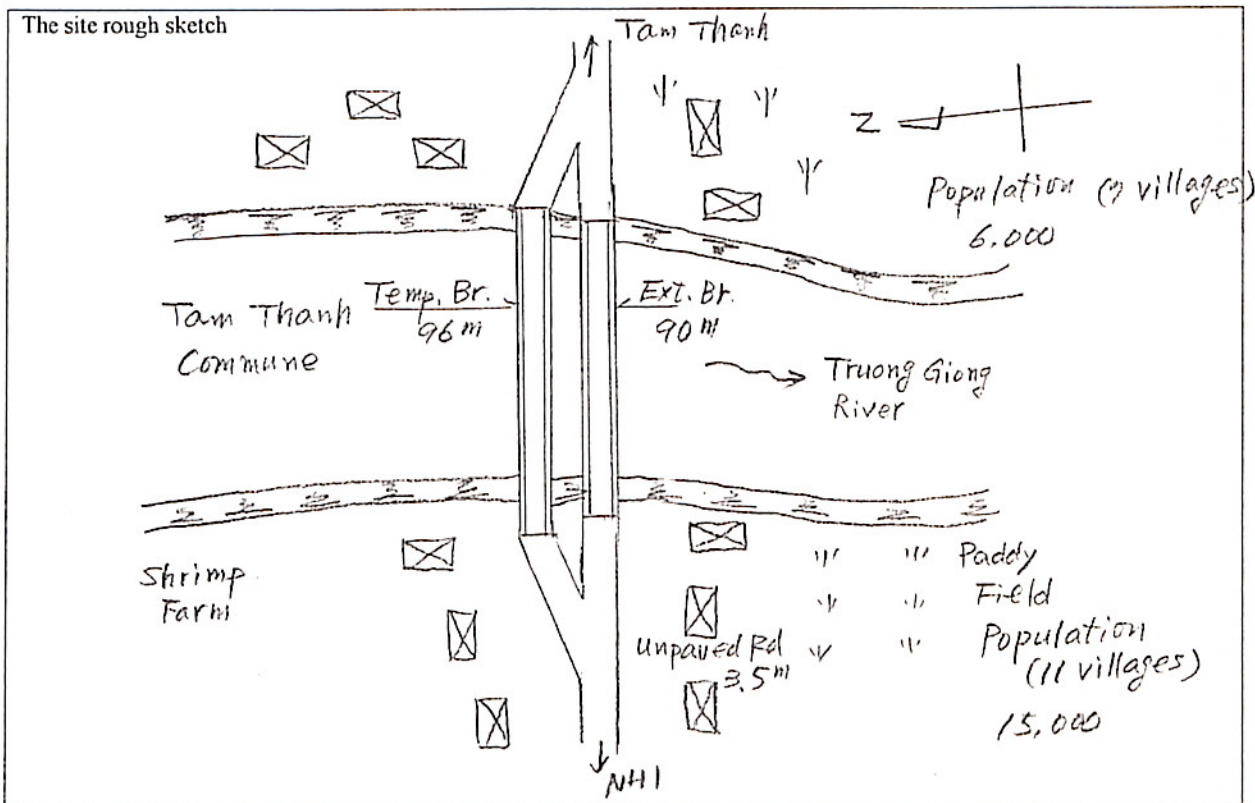 The site rough sketch
Tam Thanh
Z
Population (7 villages)
6.000
Temp. Br.
96 m
Ext. Br.
90 m
Tam Thanh
Commune
Truong Giong
River
Shrimp
Farm
Paddy
Field
Unpaved Rd
3.5 m
Population
(11 villages)
15,000
NH1